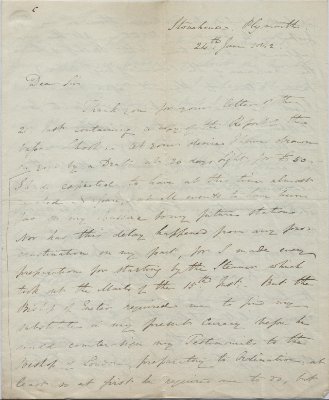 Stonehouse, Plymouth
24th June 1842
Dear Sir
Thank you for your letter of the
2 inst containing a copy of the Report
At your desire I have drawn
on you by a Draft at 30 days sight for £60.
I had expected to have at this time almost
to have been
far on my to my future station
Nor has this delay happened from any pro-
crastination on my part, for I made every
preparation for starting by the Steamer which
took out the Mails of the 15th Inst. But the
Bishop of Exeter required me to find my
substitute in my present Curacy before he
would countersign my Testimonials to the
Bishop of London, preparatory to Ordination, at
least so at first he required me to do, but